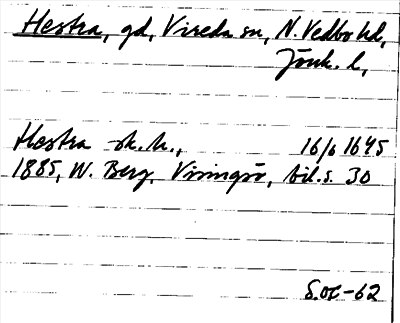 Hestra, gd, Vireda sn, N. Vedbo hd,
Jönk. l,
Hestra sk. h., 16/6 1645
1885, W. Berg, Visingsö, bil. s. 30
S.OC-62